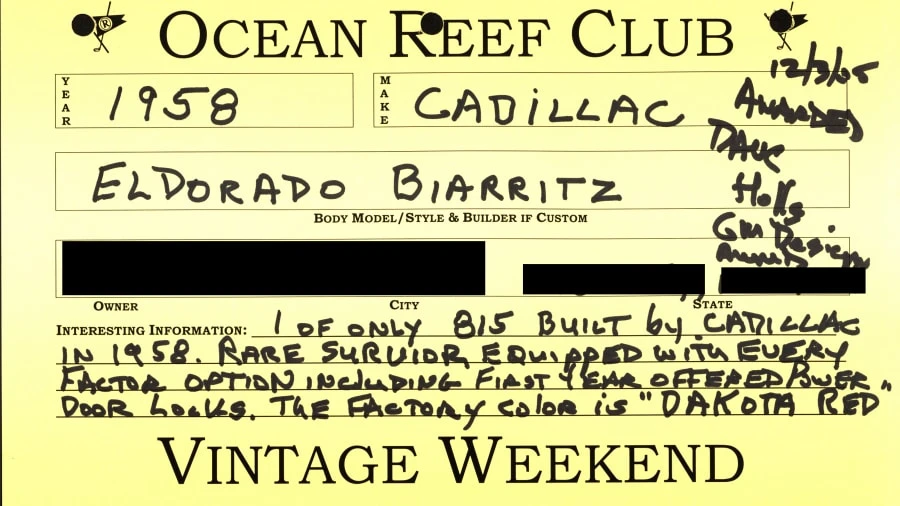 OCEAN REEF CLUB
12/3/05
YEAR 1958 MAKE CADILLAC
AWARDED
DAVE
ELDORADO BIARRITZ
Holls
BODY MODEL/STYLE & BUILDER IF CUSTOM
GM Design
Award
OWNER CITY STATE
INTERESTING INFORMATION: 1 OF ONLY 815 BUILT by CADILLAC
IN 1958. RARE SURVIOR EQUIPPED WITH EVERY
FACTOR OPTION INCLUDING FIRST YEAR OFFERED POWER
DOOR LOCKS. THE FACTORY COLOR is "DAKOTA RED"
VINTAGE WEEKEND